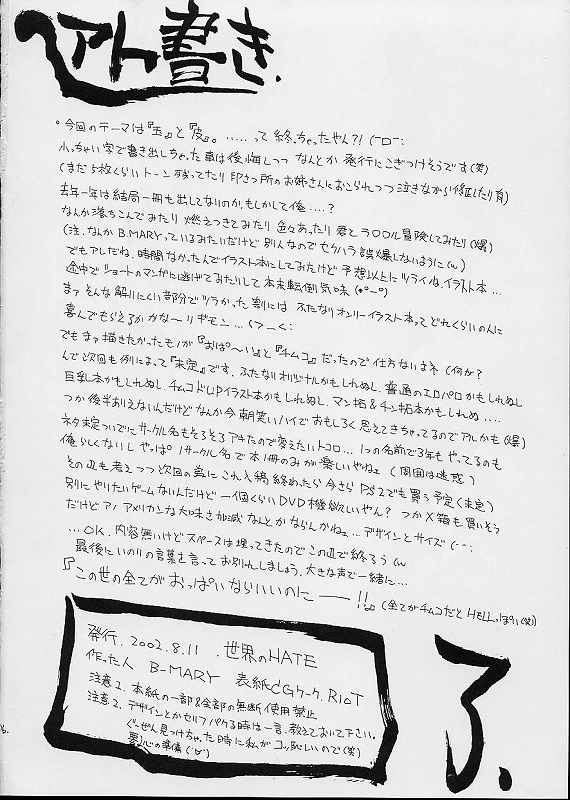 アト書き.
。今回のテーマは『玉』と『皮』。……って終っちゃったやん?!(ーロー;
小っちゃい字で書き出しちゃった事は後悔しつつ なんとか発行にこぎつけそうです(笑)
(まだ5枚くらいトーン残ってたり印さつ所のお姉さんにおこられつつ泣きながら修正したり有)
去年一年は結局一冊も出してないのか、もしかして俺….?
なんか落ちこんでみたり 燃えつきてみたり 色々あったり 愛とラ○○ル冒険してみたり(爆)
(注、なんか B.MARYっているみたいだけど 別人なのでセクハラ誤爆しないように(w)
でもアレだね、時間なかったんでイラスト本にしてみたけど 予想以上にツライね、イラスト本…
途中でショートのマンガに逃げてみたりして本末転倒気味
まァそんな解りにくい部分でツラかった割には ふたなりオンリーイラスト本ってどれくらいの人に
喜んでもらえるかかなーりギモン…
でもまァ描きたかったものが『おぱ〜い』と『チムコ』だったので仕方ないよネ(何が?
んで次回も例によって『未定』です、ふたなりオリジナルかもしれぬし、普通のエロパロかもしれぬし
巨乳本かもしれぬし、チムコドUPイラスト本かもしれぬし、マン拓&チン拓本かもしれぬ….
つか後半ありえないんだけど なんか今朝笑いハイでおもしろく思えてきちゃってるのでアレかも(爆)
ネタ未定ついでにサークル名もそろそろアキたので変えたいトコロ… 1つの名前で3年もやってるのも
俺らしくないし やっぱ1サークル名で本1冊のみが楽しいやねェ(周囲は迷惑)
その辺も考えつつ次回の為に これ入稿終わったら今さらPS2でも買う予定(未定)
別にやりたいゲームなんだけど 一個くらいDVD機欲しいやん? つかX箱も買いそう
だけどアノ アメリカンな大味さ加減なんとかならんかねェ…デザインとサイズ(ーー;
…OK、内容無いけどスペースは埋ってきたのでこの辺で終ろう(w
最後にいのりの言葉も言ってお別れしましょう、大きな声で一緒に…
『この世の全てがおっぱいならいいのにーー!!』(全てがチムコだとHELLっぽい(笑))
発行. 2002.8.11 .世界のHATE
作った人 B-MARY 表紙CGワーク. RIOT
注意1. 本紙の一部&全部の無断使用禁止
注意2. デザインとかセリフパクる時は一言、教えておいて下さい。
ぐーぜん見つけちゃった時に私がコッ恥しいので(笑)
心の準備
了.